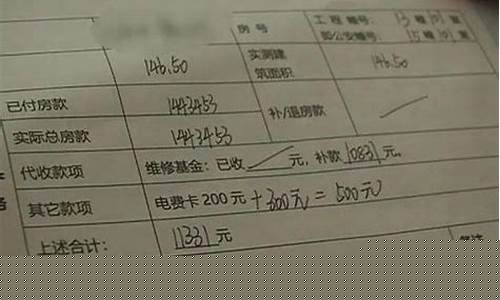 房号 工程编号: 15幢101室
即公安编号: 15幢101室
146.50 实测建筑面积 146.50
已付房款 1443453 补/退房款
实际总房款 1443453
代收款项 维修基金:已收 元,补款10831元,
其它款项 电费卡200元+300元=500元
上述合计: 11331元